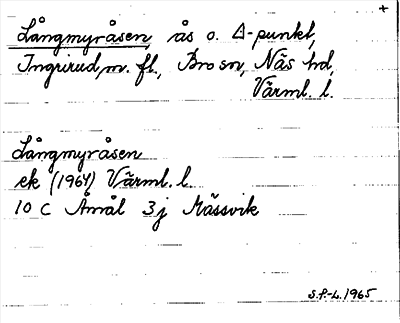 +
Långmyråsen, ås o. △-punkt,
Ingrirud, m. fl., Bro sn, Näs hd,
Värml. l.
Långmyråsen
ek (1964) Värml. l.
10 C Åmål 3j Mässvik
S.P.-L. 1965